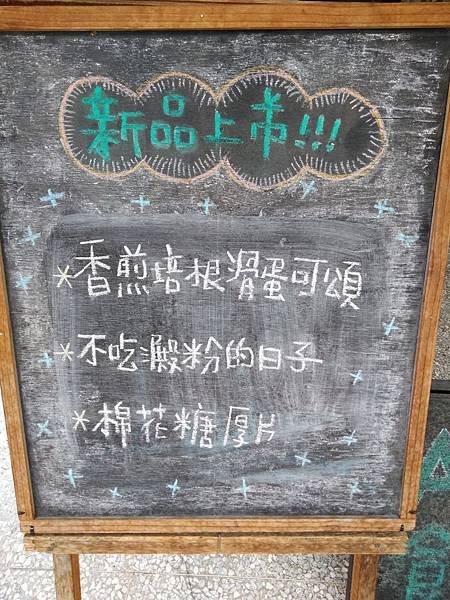 新品上市!!!
*香煎培根滑蛋可頌
*不吃澱粉的日子
*棉花糖厚片